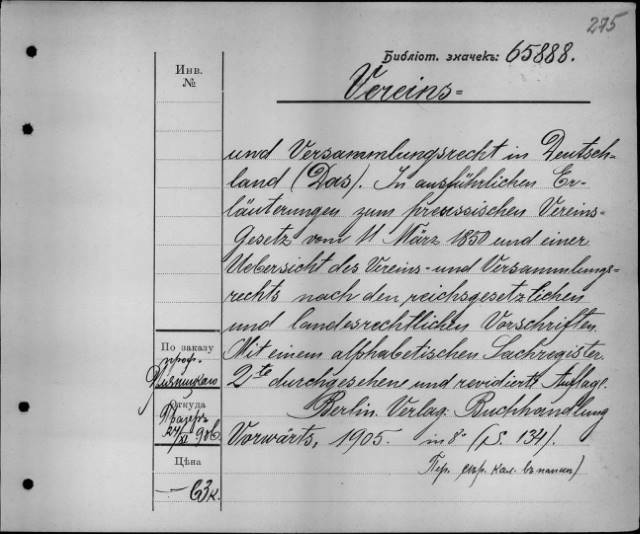 275
Библіот. значекъ: 65888.
Инв.
№
Vereins=
und Versammlungsrecht in Deutsch-
land (Das). In ausführlichen Er-
läuterungen zum preussischen Vereins-
Gesetz vom 11 März 1850 und einer
Uebersicht des Vereins- und Versammlungs-
rechts nach den reichsgesetzlichen
und landesrechtlichen Vorschriften.
Mit einem alphabetischen Sachregister.
2te durchgesehene und revidierte Auflage.
Berlin. Verlag: Buchhandlung
Vorwärts, 1905. in 8° (S. 134).
Пер. въ папкѣ)
По заказу
проф.
Откуда
24/XI 906.
Цѣна
— 63 к.